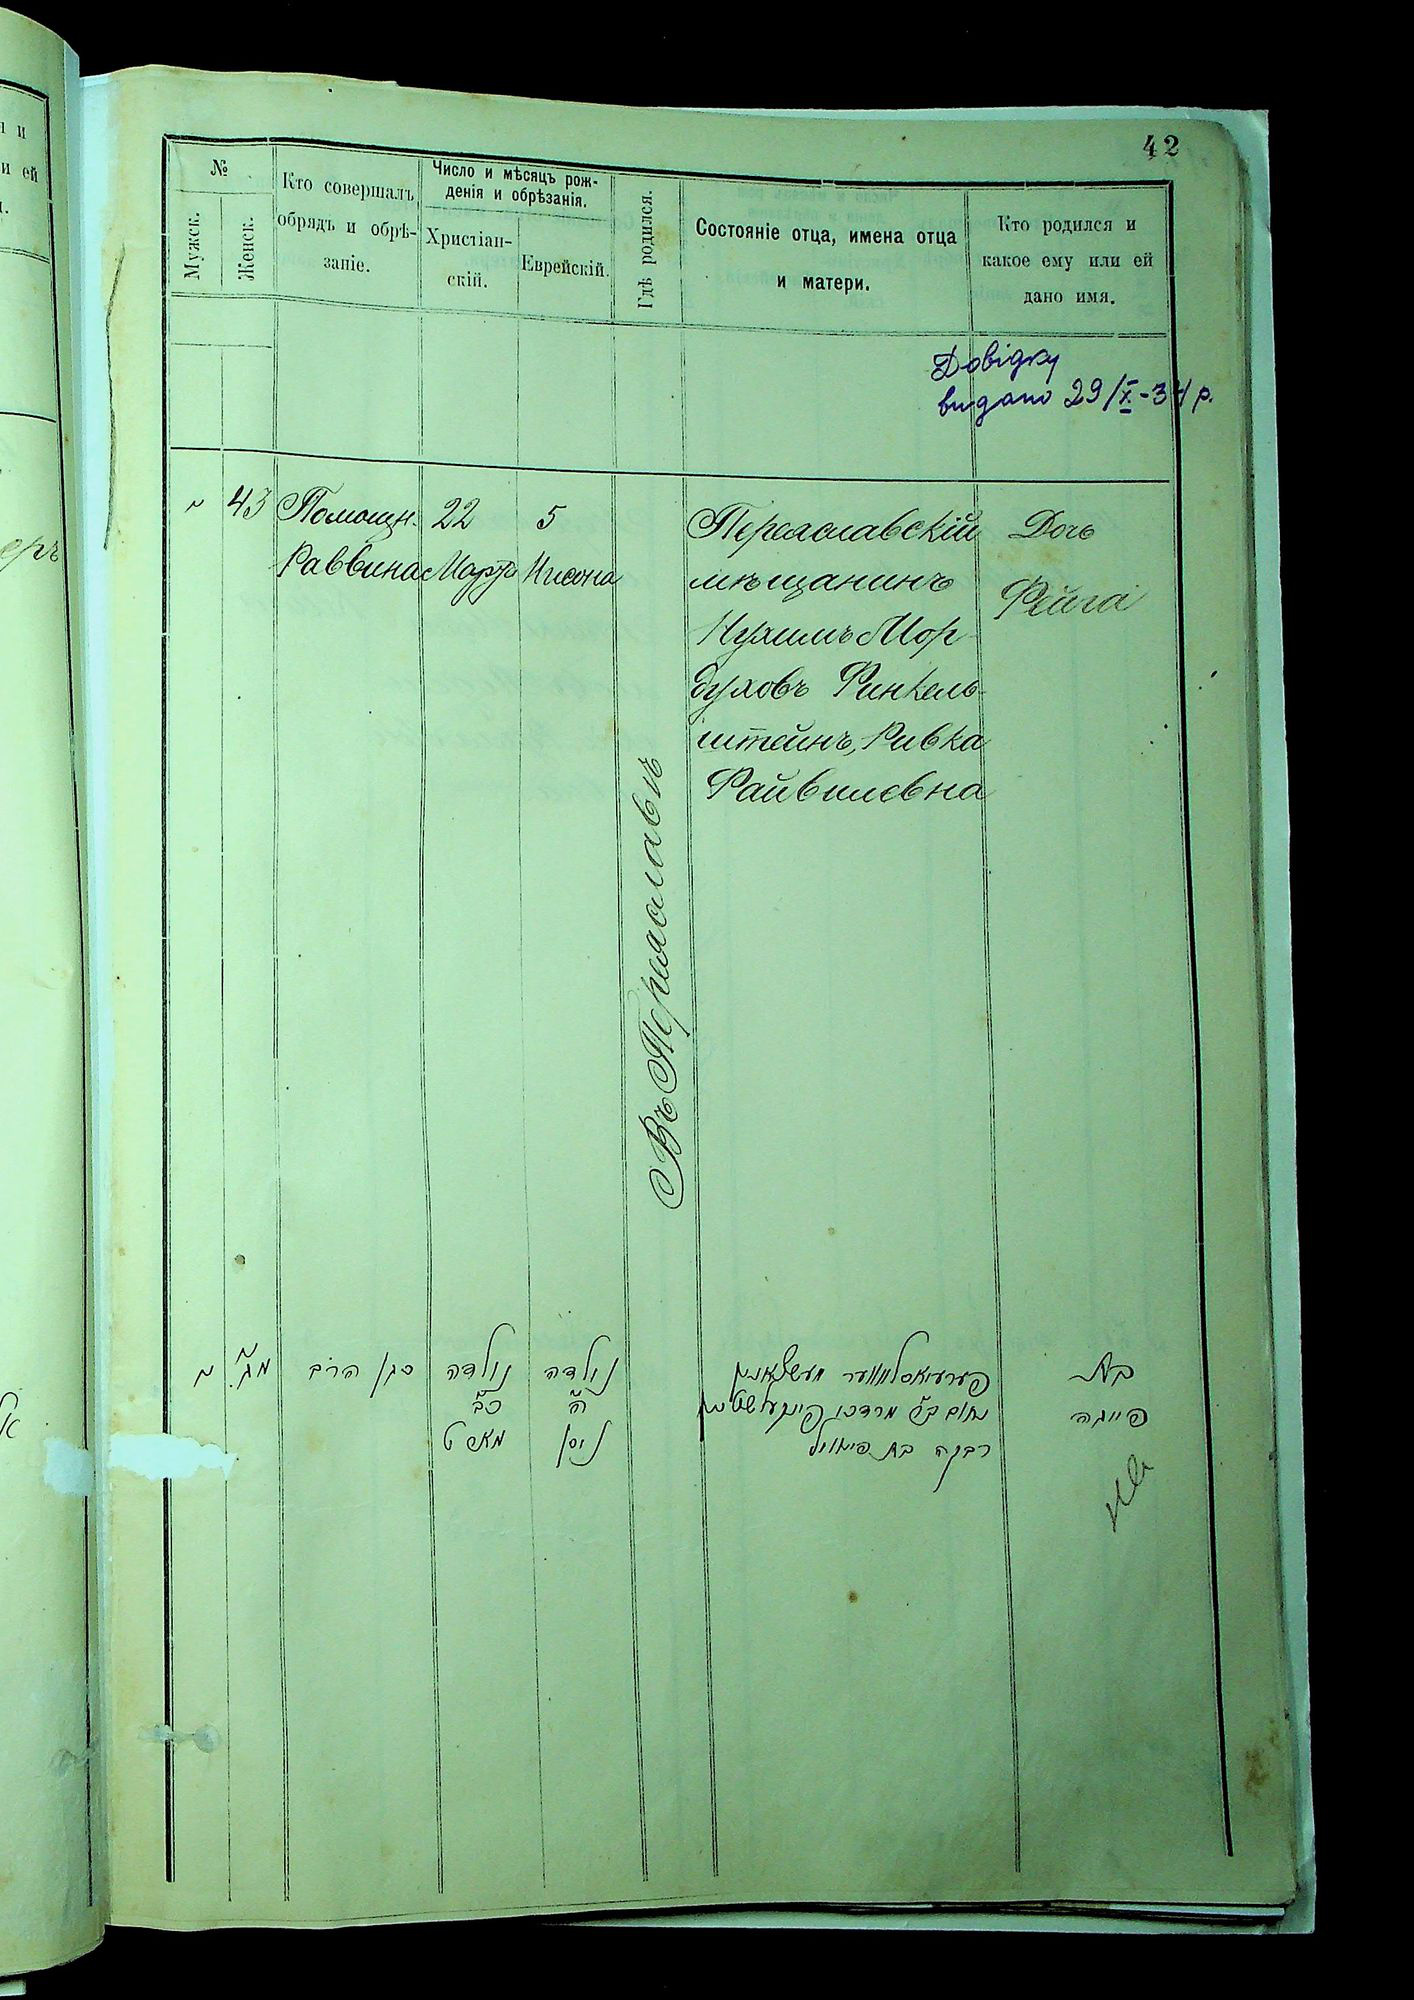 42
№
Мужск.
Женск.
Кто совершалъ
обрядъ и обрѣ-
заніе.
Число и мѣсяцъ рож-
денія и обрѣзанія.
Христіан-
скій.
Еврейскій.
Гдѣ родился.
Состояніе отца, имена отца
и матери.
Кто родился и
какое ему или ей
дано имя.
Довідку
видано 29/X-34 р.
43
Помощн.
Раввина
22
Марта
5
Нисона
Въ Переяславѣ
Переяславскій
мѣщанинъ
Нухимъ Мор-
духовъ Финкель-
штейнъ, Ривка
Файвилевна
Дочь
Фейга
מג
סגן הרב
נולדה
כב
מארט
נולדה
ה
ניסן
פערעיאסלאווער
נחום מרדכי
רבקה בת
בת
פייגה